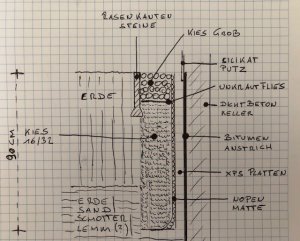 RASENKANTEN
STEINE
KIES GROB
SILIKAT
PUTZ
ERDE
UNKRAUTFLIES
DICHTBETON
KELLER
KIES
16/32
BITUMEN
ANSTRICH
90 CM
XPS PLATTEN
ERDE/
SAND/
SCHOTTER
LEMM(?)
NOPEN
MATTE